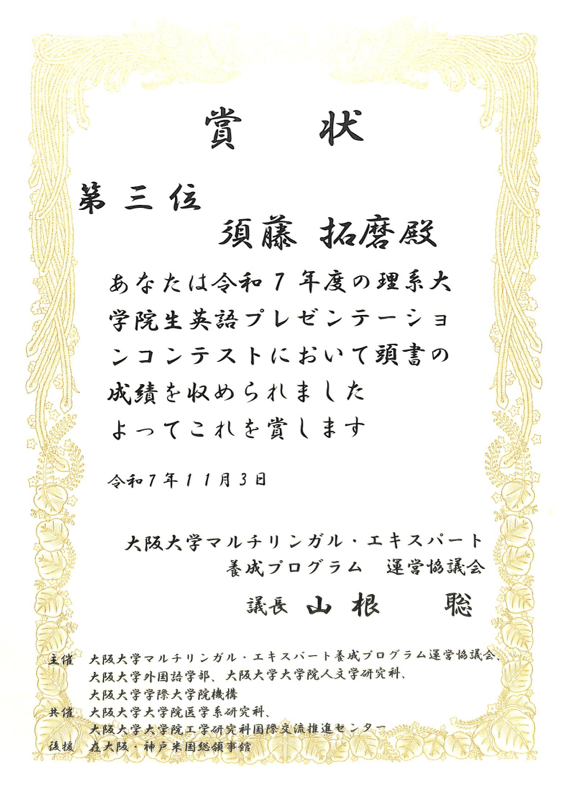 賞状
第三位
須藤 拓磨殿
あなたは令和7年度の理系大
学院生英語プレゼンテーショ
ンコンテストにおいて頭書の
成績を収められました
よってこれを賞します
令和7年11月3日
大阪大学マルチリンガル・エキスパート
養成プログラム 運営協議会
議長 山根 聡
主催 大阪大学マルチリンガル・エキスパート養成プログラム運営協議会、
大阪大学外国語学部、大阪大学大学院人文学研究科、
大阪大学学際大学院機構
共催 大阪大学大学院医学系研究科、
大阪大学大学院工学研究科国際交流推進センター
後援 在大阪・神戸米国総領事館